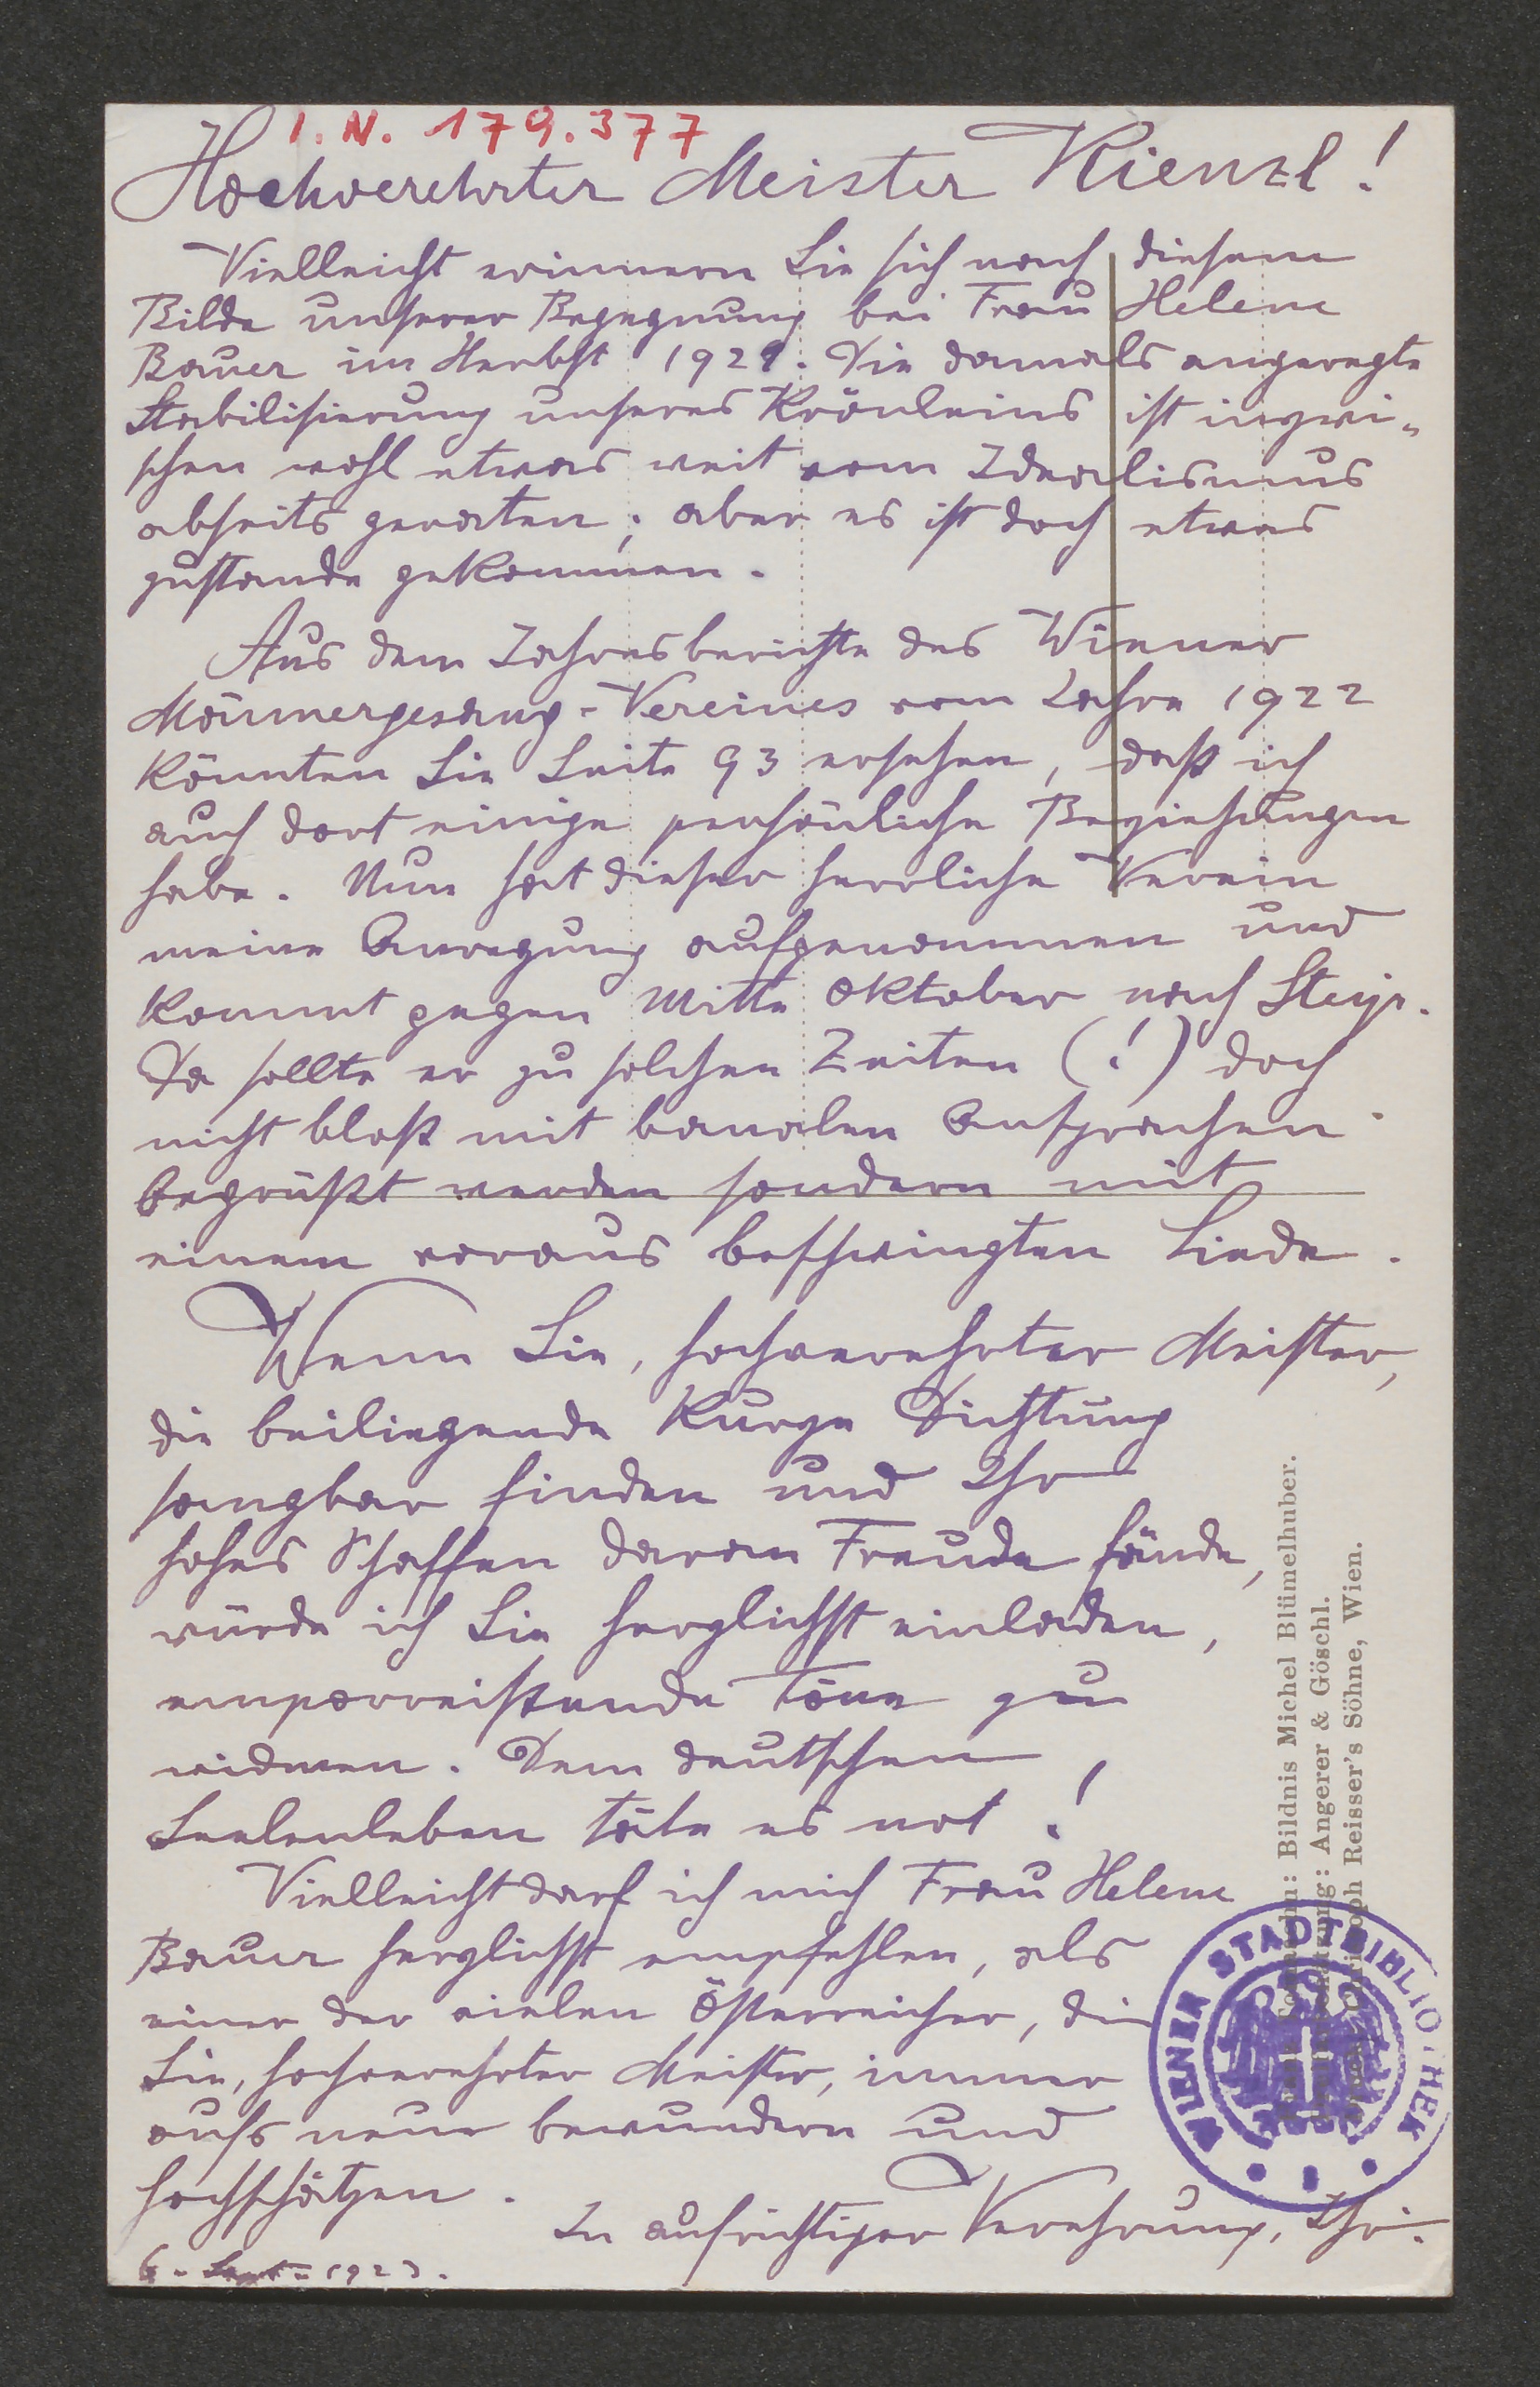 I. N. 179.377
Hochverehrter Meister Kienzl!
Vielleicht erinnern Sie sich nach diesem
Bilde unserer Begegnung bei Frau Helene
Bauer im Herbst 1921. Die damals angeregte
Stabilisierung unseres Krönleins ist inzwi-
schen wohl etwas weit vom Idealismus
abseits geraten; aber es ist doch etwas
zustande gekommen.
Aus dem Jahresberichte des Wiener
Männergesang-Vereines vom Jahre 1922
könnten Sie Seite 93 ersehen, daß ich
auch dort einige persönliche Beziehungen
habe. Nun hat dieser herrliche Verein
meine Anregung aufgenommen und
kommt gegen Mitte Oktober nach Steyr.
Da sollte er zu solchen Zeiten (!) doch
nicht bloß mit banalen Ansprachen
begrüßt werden sondern mit
einem voraus beschwingten Liede.
Wenn Sie, hochverehrter Meister,
die beiliegende kurze Dichtung
sangbar finden und Ihr
hohes Schaffen daran Freude fände,
würde ich Sie herzlichst einladen,
emporreißende Töne zu
widmen. Dem deutschen
Seelenleben täte es not!
Vielleicht darf ich mich Frau Helene
Bauer herzlichst empfehlen, als
einer der vielen Österreicher, die
Sie, hochverehrter Meister, immer
aufs neue bewundern und
hochschätzen.
In aufrichtiger Verehrung, Ihr.
6. Sept. 1923.
Bildnis Michel Blümelhuber.
Angerer & Göschl.
Christoph Reisser's Söhne, Wien.
WIENER STADTBIBLIOTHEK